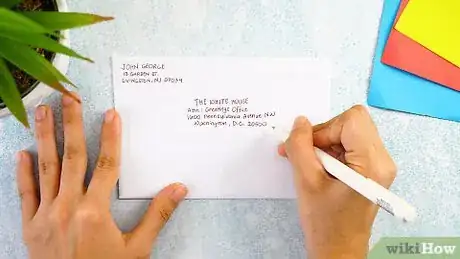 JOHN GEORGE
13 GARDEN ST.
LIVINGSTON, NJ 07039
THE WHITE HOUSE
Attn: Greetings Office
1600 Pennsylvania Avenue NW
Washington, D.C. 20500
wikiHow